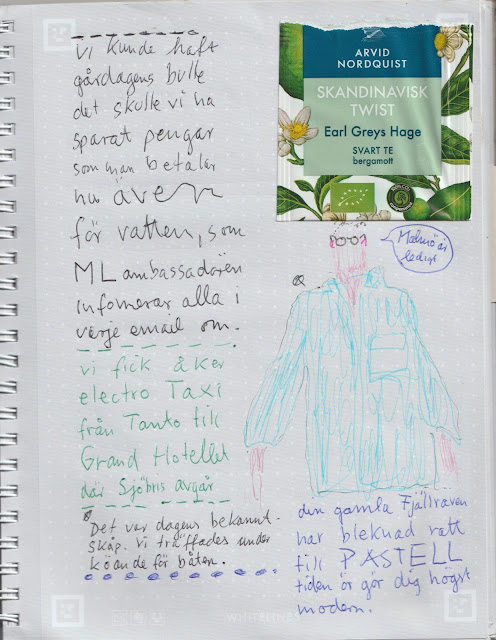 vi kunde haft
gårdagens bulle
det skulle vi ha
sparat pengar
som man betalar
nu även
för vatten, som
ML ambassadören
infomerar alla i
varje email om.
vi fick åker
electro Taxi
från Tanto till
Grand Hotellet
där Sjöbris avgår
Det var dagens bekannt-
skåp. vi träffades under
köande för båten.
ARVID
NORDQUIST
SKANDINAVISK
TWIST
Earl Greys Hage
SVART TE
bergamott
Malmö är
den gamla Fjällraven
har bleknad rätt
till PASTELL
tiden gör dig högst
modern.
WHITELINES